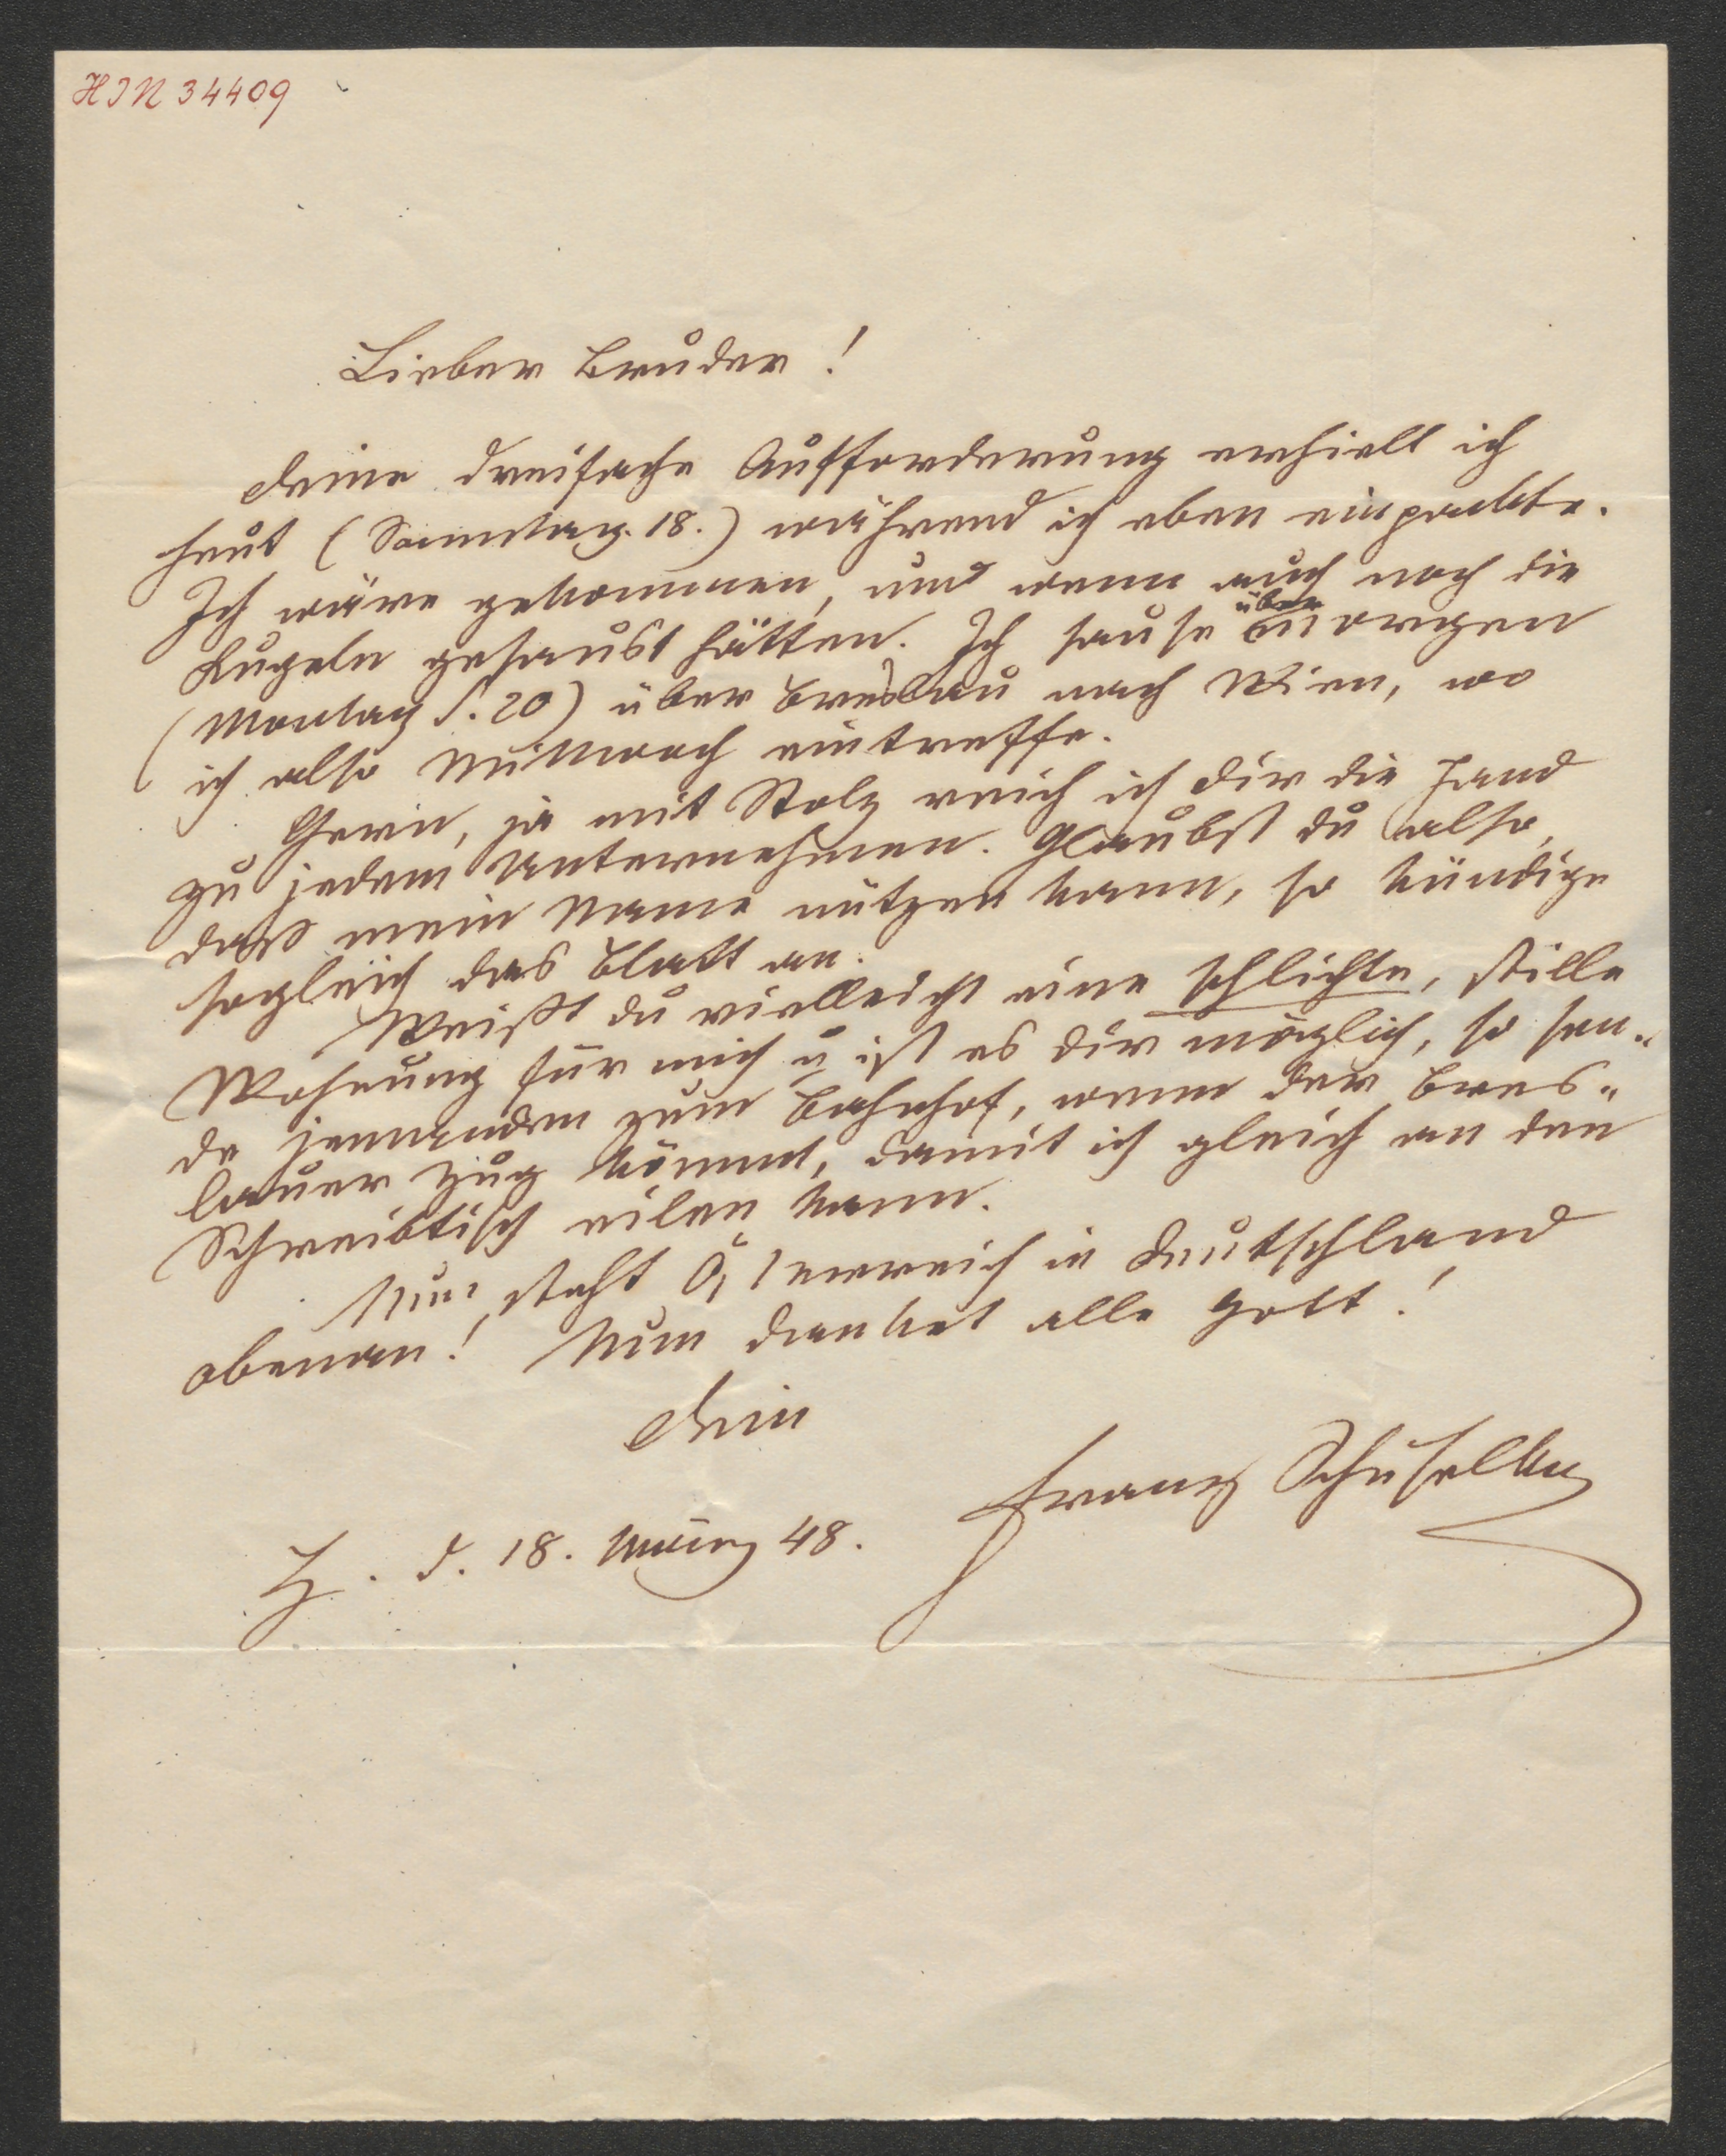 HIN 34409
Lieber Bruder!
Deine dreifache Aufforderung erhielt ich
heut (Samstag. 18.) während ich eben einpackte.
Ich wäre gekommen, und wenn auch noch die
über
Kugeln gesaust hätten. Ich sause morgen
(Montag d. 20) über Breslau nach Wien, wo
ich also Mittwoch eintreffe.
Gern, ja mit Stolz reich ich dir die Hand
zu jedem Unternehmen. Glaubst du also,
daß mein Name nützen kann, so kündige
sogleich das Blatt an.
Weißt du vielleicht eine schlichte, stille
Wohnung für mich u ist es dir möglich, so sen„
de jemanden zum Bahnhof, wenn der Bres„
lauer Zug kömmt, damit ich gleich an den
Schreibtisch eilen kann.
Nun steht Österreich in Deutschland
obenan! Nun danket alle Gott!
Dein
Franz Schuselka
H. d. 18. März 48.